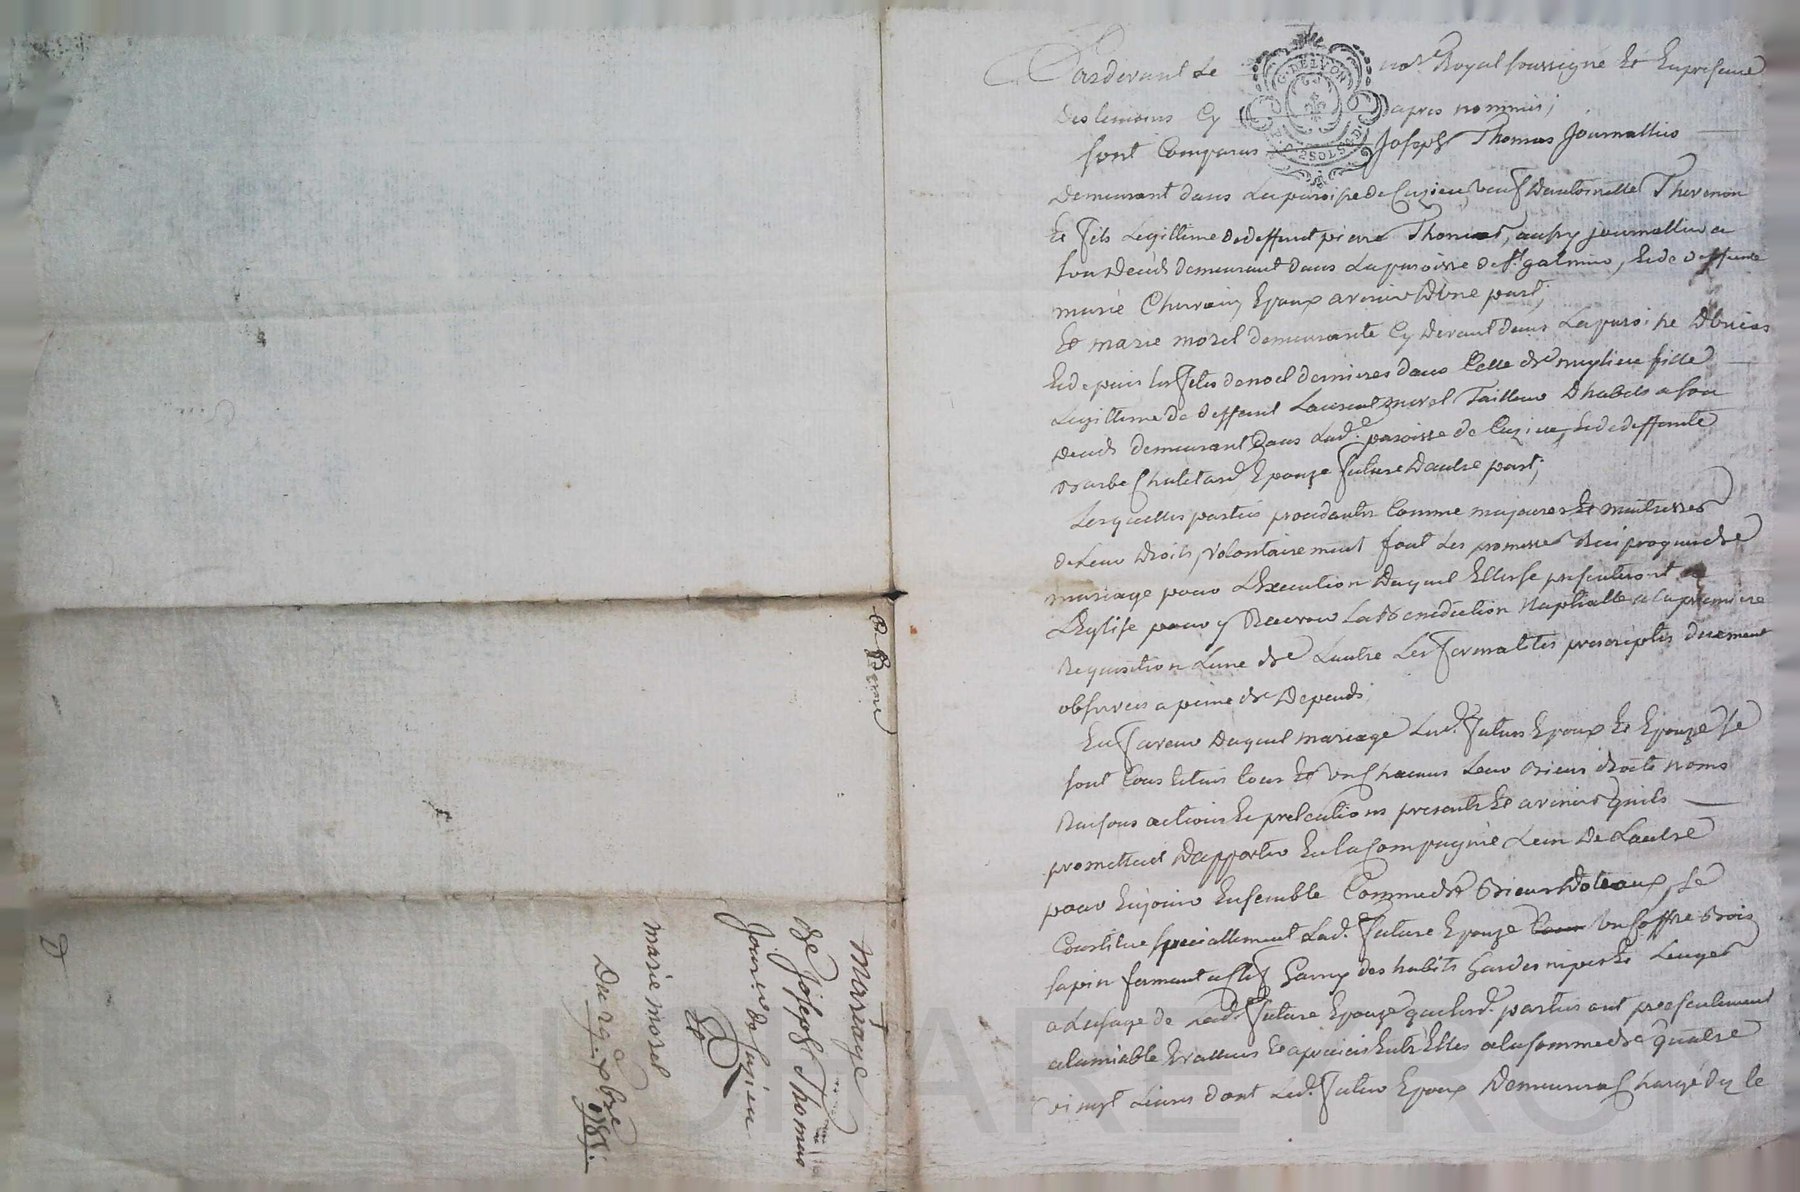 Pardevant Le not.re Royal soussigné Et En presence
Des temoins Cy apres nommés;
G. DE LYON
2 SOLS 6 D
sont Comparus Joseph Thomas Journallier
Demeurant dans La paroisse de Cuzieu, veuf D'antoinette Thevenon
Et fils Legittime de deffunt pierre Thomas, aussy journallier a
son Deceds demeurant dans La paroisse de St. galmier, Et de deffunte
marie Chervain, Epoux avenir D'une part,
Et marie morel demeurante Cy Devant dans La paroisse
Et depuis Les fetes de noel dernieres dans Celle de meylieu fille
Legittime de deffunt Laurent morel Tailleur D'habits a son
Deceds demeurant Dans Lad.e paroisse de Cuzieu, Et de deffunte
Barbe Chuletard Epouze future D'autre part;
Lesquelles parties procedantes Comme majeures Et maitresses
de Leur Droits, volontairement font Les promesses Reciproques de
mariage pour L'Execution Duquel Elles se presenteront a
L'Eglise pour y Recevoir La Benediction Nuptialle a la premiere
Requisition L'une de L'autre Les formalités prescriptes duement
observées a peine de Depends;
En faveur Duquel mariage Lesd. futurs Epoux Et Epouze se
sont Constitués tous Et Un Chacuns Leur Biens droits noms
Raisons actions Et pretentions presents Et avenir qu'ils
promettent D'apporter En la Compagnie L'un De L'autre
pour En jouir Ensemble Comme de Biens Doteaux, se
Constitue speciallement Lad. future Epouze Un Coffre Bois
sapin fermant a Clef Garny des habits hardes nipes Et Linges
a L'usage de Lad. future Epouze que Lesd. parties ont presentement
alamiable Evallués Et apreciés Entr'Elles a la somme de quatre
vingt Livres dont Led. futur Epoux Demeurera Chargé du Ce
mariage
de Joseph Thomas
Jour.er de Cuzieu
Et
marie morel
Du 29. xbre
1781.